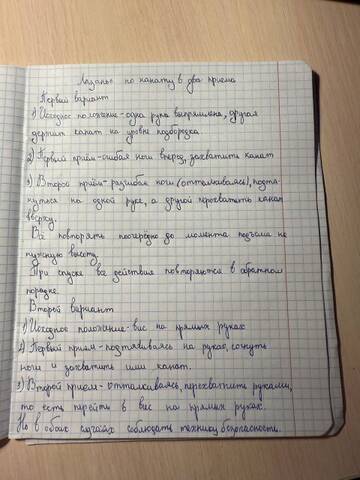 Лазанье по канату в два приема
Первый вариант
1) Исходное положение-одна рука выпрямлена, другая
держит канат на уровне подбородка
2) Первый приём-сгибая ноги вперед, захватить канат
3) Второй приём-разгибая ноги (отталкиваясь), подтя-
нуться на одной руке, а другой перехватить канат
вверху.
Всё повторять поочередно до момента подъёма на
нужную высоту.
При спуске все действия повторяются в обратном
порядке.
Второй вариант
1) Исходное положение-вис на прямых руках
2) Первый прием-подтягиваясь на руках, согнуть
ноги и захватить ими канат.
3) Второй прием-отталкиваясь, перехватить руками,
то есть перейти в вис на прямых руках.
Но в обоих случаях соблюдать технику безопасности.